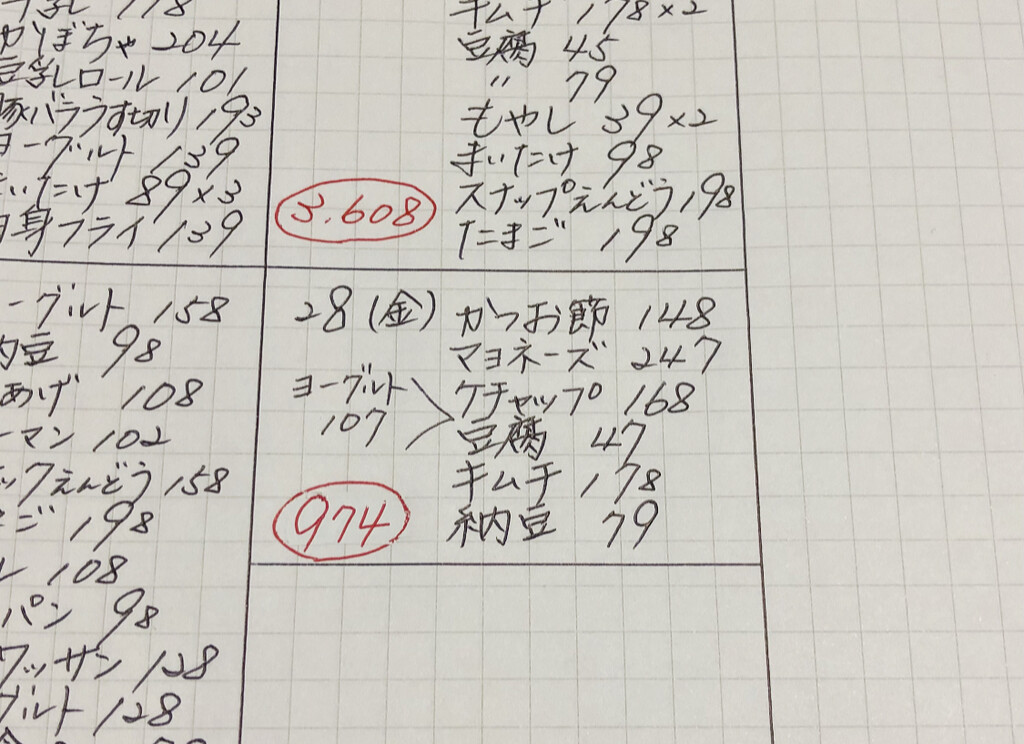 204
豆乳ロール 101
豚バラうす切り 193
ヨーグルト 139
まいたけ 89×3
白身フライ 139
ーグルト 158
納豆 98
あげ 108
ーマン 102
ップえんどう 158
ご 198
108
パン 98
ワッサン 128
グルト 128
キムチ 178×2
豆腐 45
〃 79
もやし 39×2
まいたけ 98
スナップえんどう 198
たまご 198
3.608
28(金) かつお節 148
マヨネーズ 247
ヨーグルト
107
ケチャップ 168
豆腐 47
キムチ 178
納豆 79
974